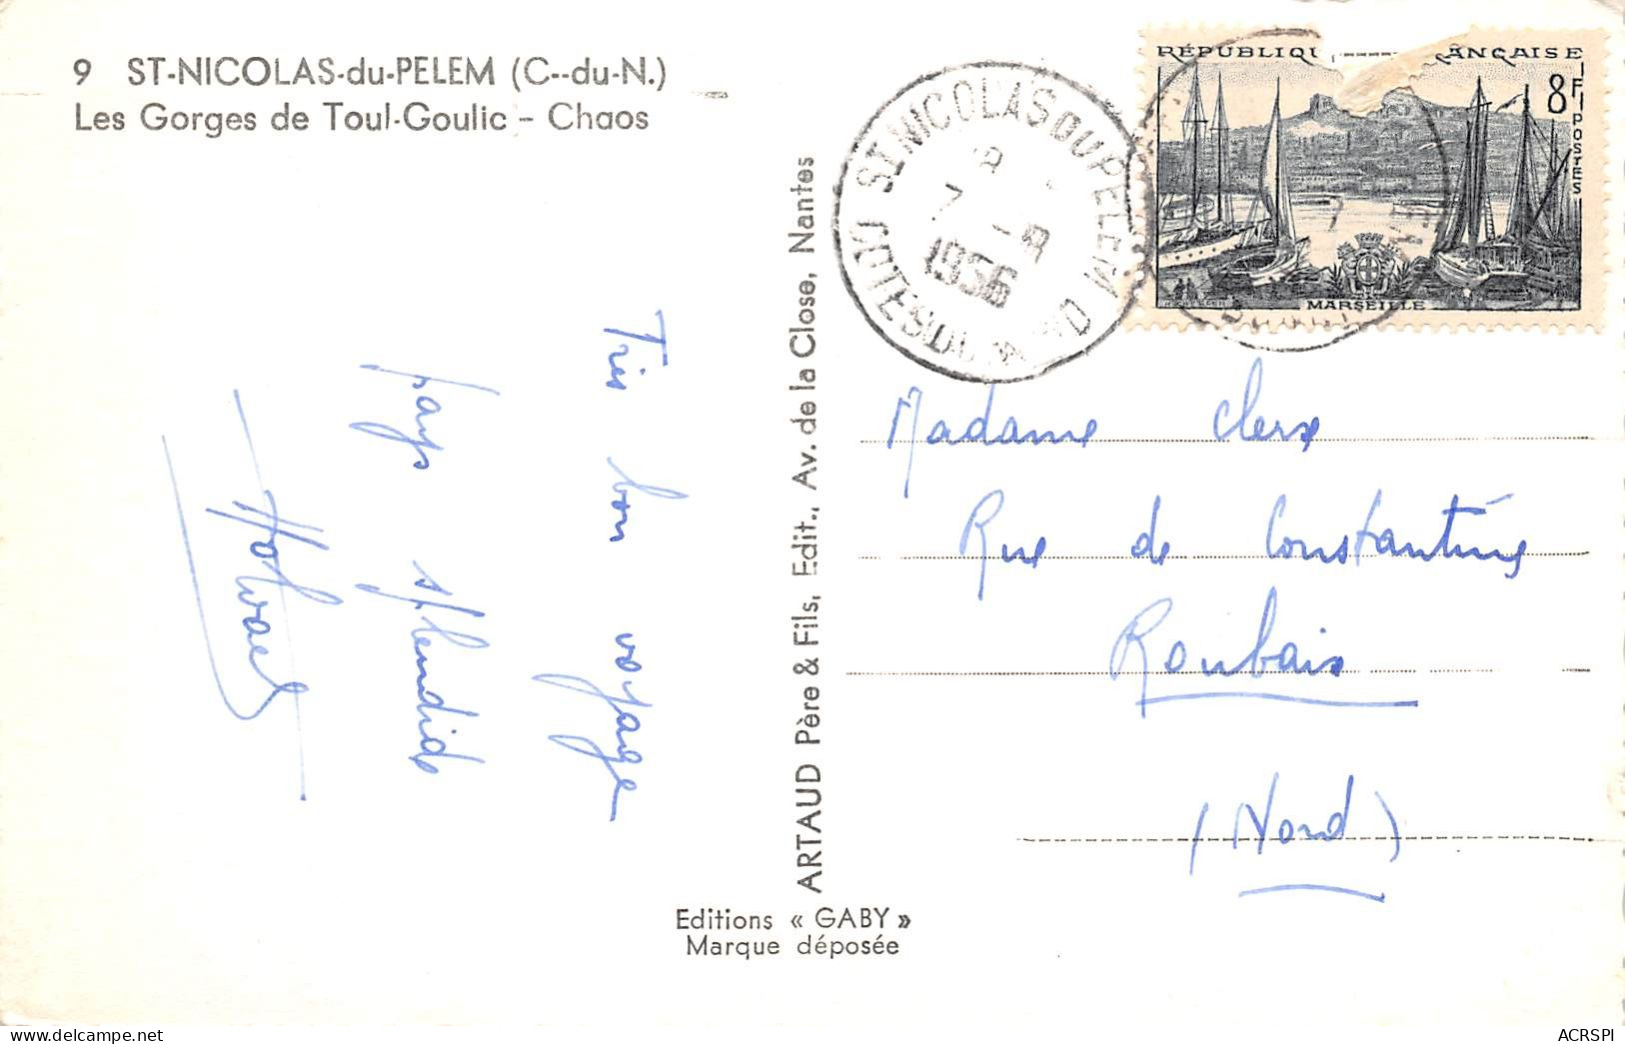 9 ST-NICOLAS-du-PELEM (C--du-N.)
Les Gorges de Toul-Goulic - Chaos
Très bon voyage
pays splendide
ARTAUD Père & Fils, Edit., Av. de la Close, Nantes
Editions « GABY »
Marque déposée
ST NICOLAS DU PELEM
COTES DU NORD
7 -8
1956
RÉPUBLIQU ANÇAISE
8F
POSTES
MARSEILLE
Madame Clerx
Rue de Constantine
Roubaix
(Nord)
ACRSPI